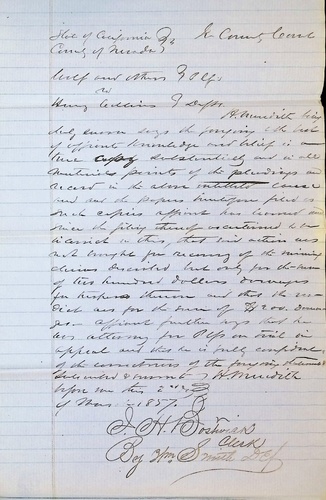 State of California
County of Nevada } In County Court
Wolf and others Plffs
vs
Henry Collins Deft
H. Meredith being
duly sworn says the foregoing is to the best
of affiants knowledge and belief is a
true copy substantially and in all
material points of the pleadings on
record in the above entitled cause
and the papers heretofore filed as
such copies affiant has learned
since the filing thereof ascertained to be
incorrect in this, that said action was
not brought for recovery of the mining
claims described but only for the sum
of two hundred dollars damages
for trespass thereon and that the
verdict was for the sum of $200. damages
affiant further says that he
was attorney for Plffs on trial on
appeal and that he is fully confident
of the correctness of the foregoing statement
Subscribed & sworn to H. Meredith
before me this 2nd
of 1857.
J. H. Bostwick
Clerk
By Wm Smith